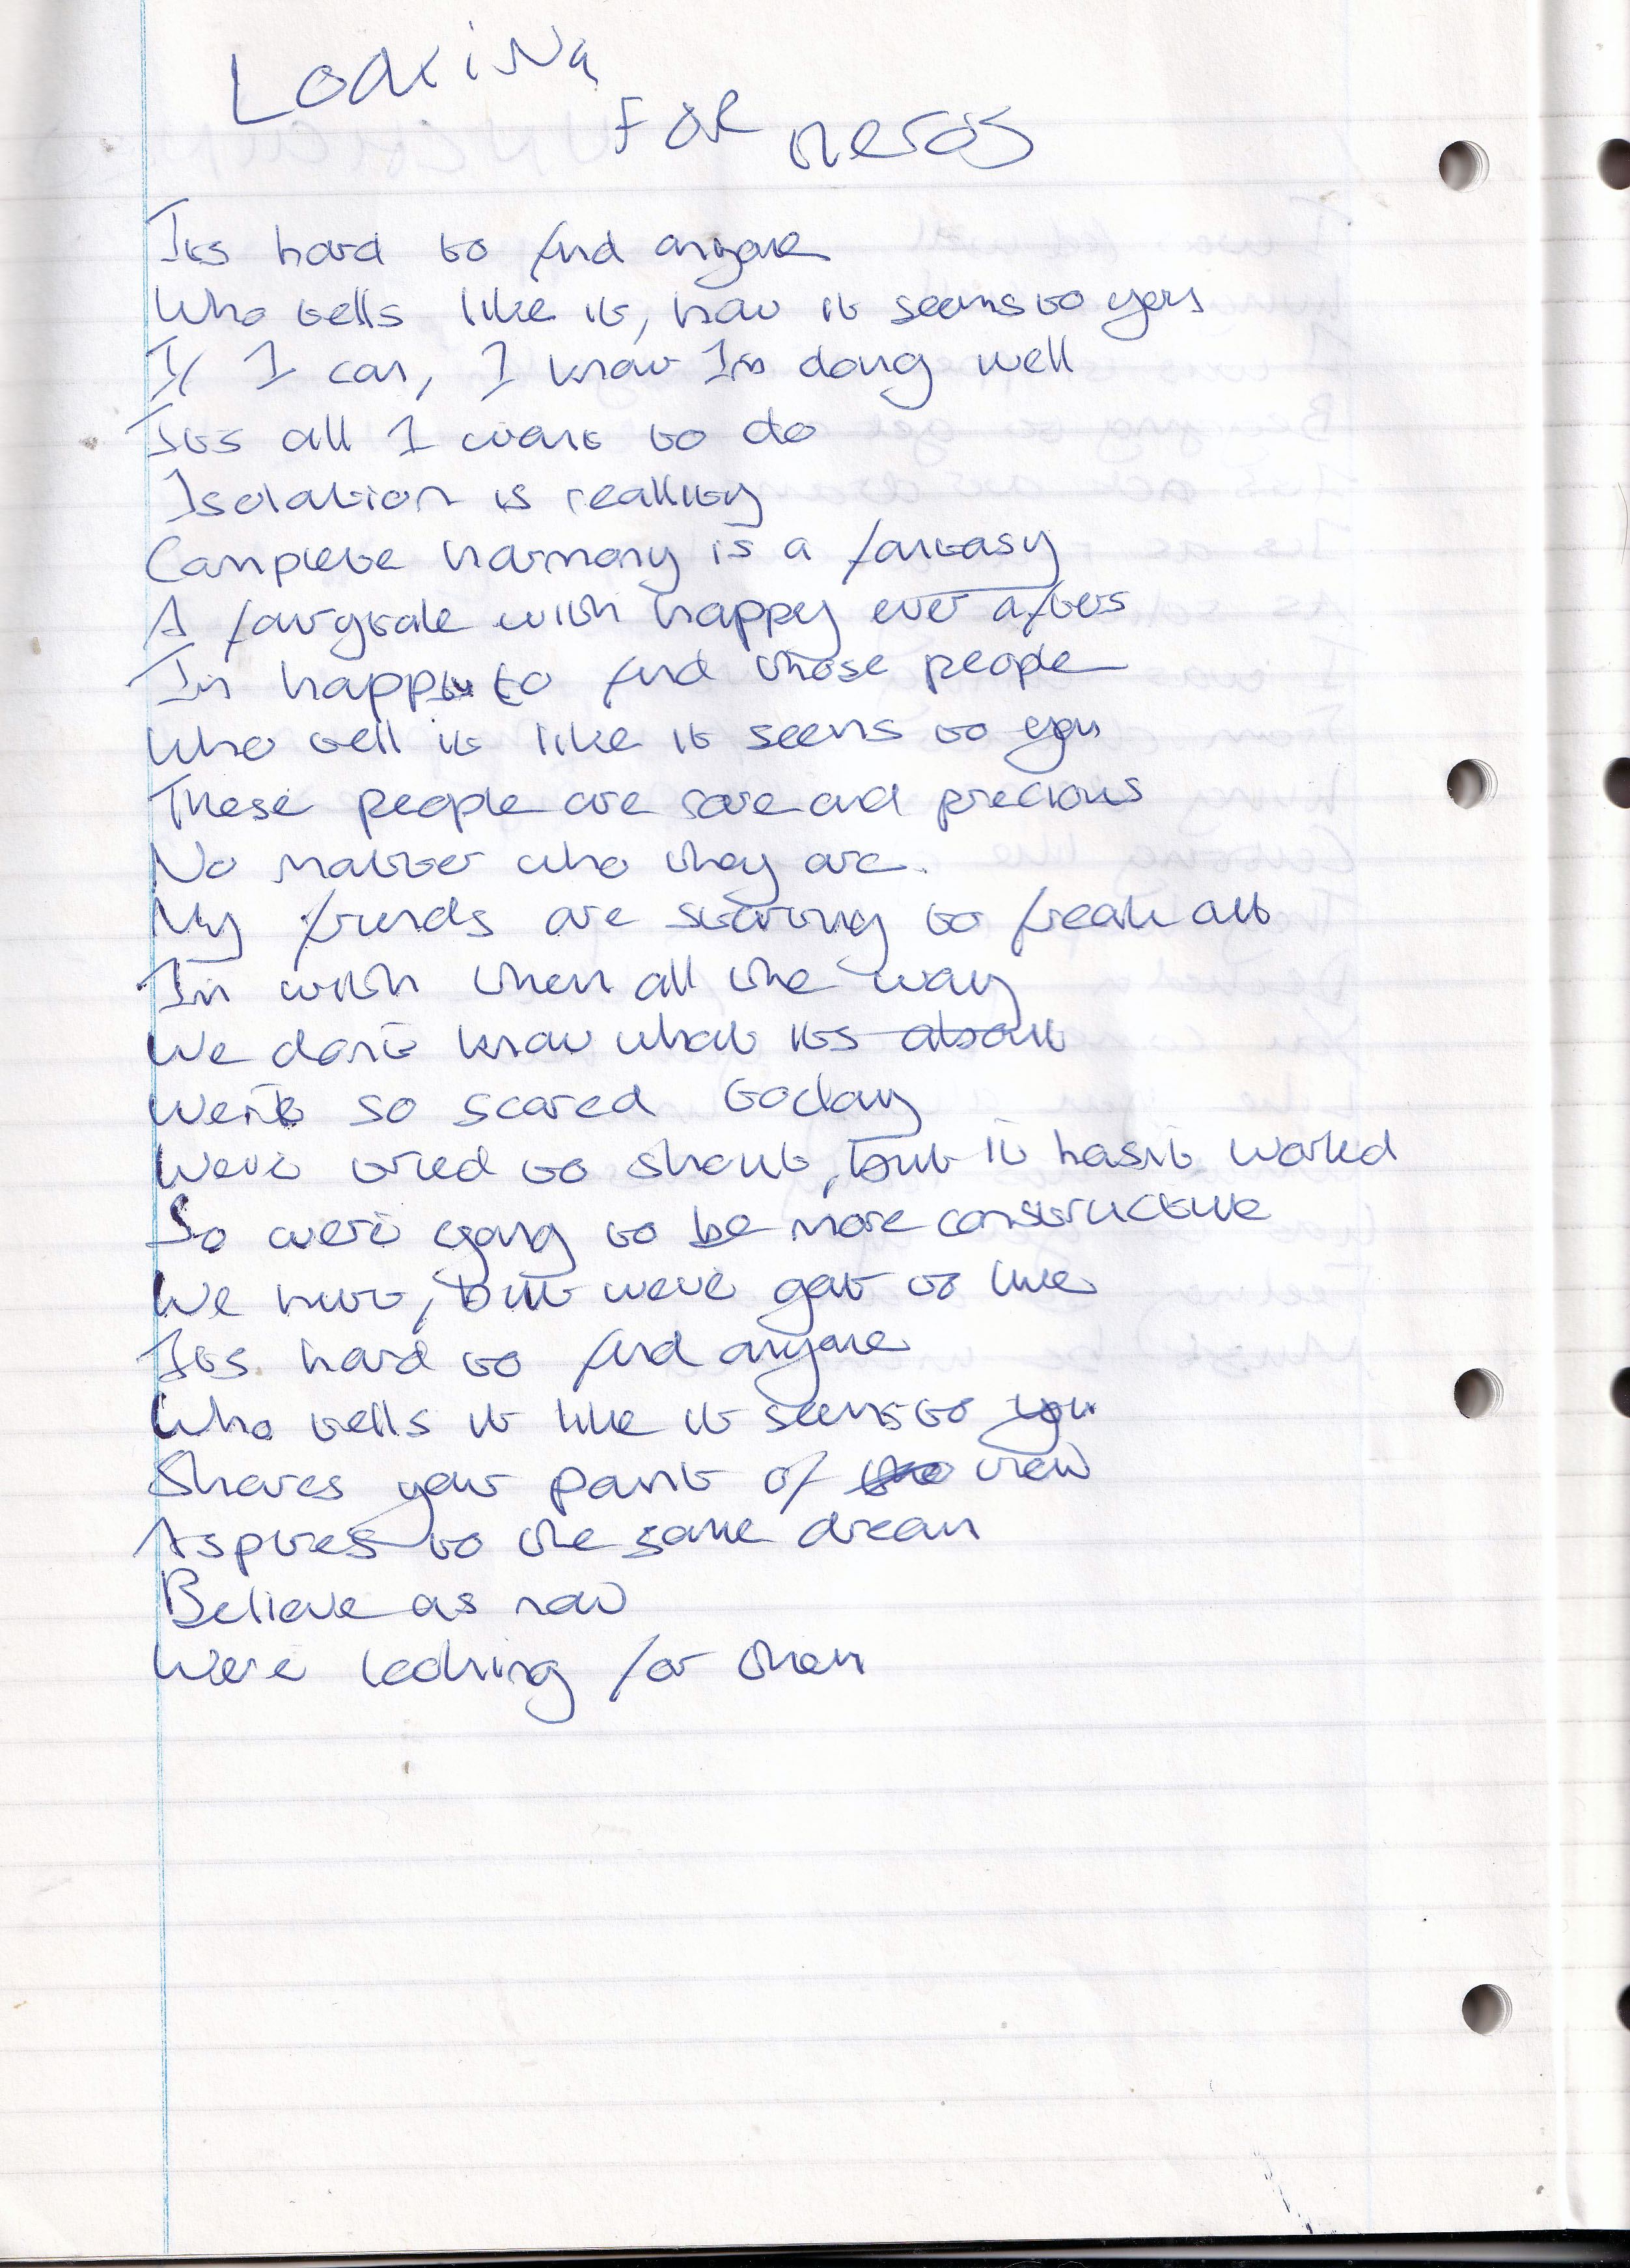 LOOKING
FOR HEROS
Its hard to find anyone
Who tells like it, how it seems to you
If I can, I know Im doing well
Its all I want to do
Isolation is reality
Complete harmony is a fantasy
A fairytale with happy ever afters
Im happy to find those people
Who tell it like it seems to you
These people are rare and precious
No matter who they are.
My friends are starting to freak out
Im with them all the way
We don't know what its about
We're so scared today
We've tried to shout, but it hasn't worked
So we're going to be more constructive
We hurt, but we've got to live
Its hard to find anyone
Who tells it like it seems to you
Shares your point of view
Aspires to the same dream
Believe as now
We're looking for them